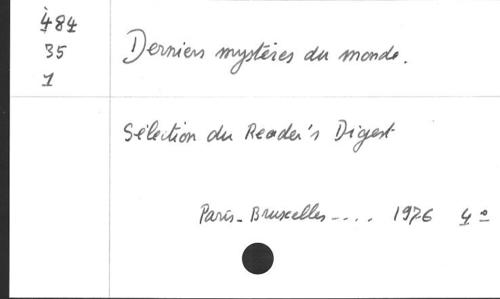 484
35
1
Derniers mystères du monde.
Sélection du Reader's Digest
Paris-Bruxelles .... 1976 4º